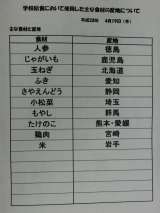 学校給食において使用した主な食材の産地について
平成28年 4月19日（水）
主な食材と産地
食材 産地
人参 徳島
じゃがいも 鹿児島
玉ねぎ 北海道
ふき 愛知
さやえんどう 静岡
小松菜 埼玉
もやし 群馬
たけのこ 熊本・愛媛
鶏肉 宮崎
米 岩手